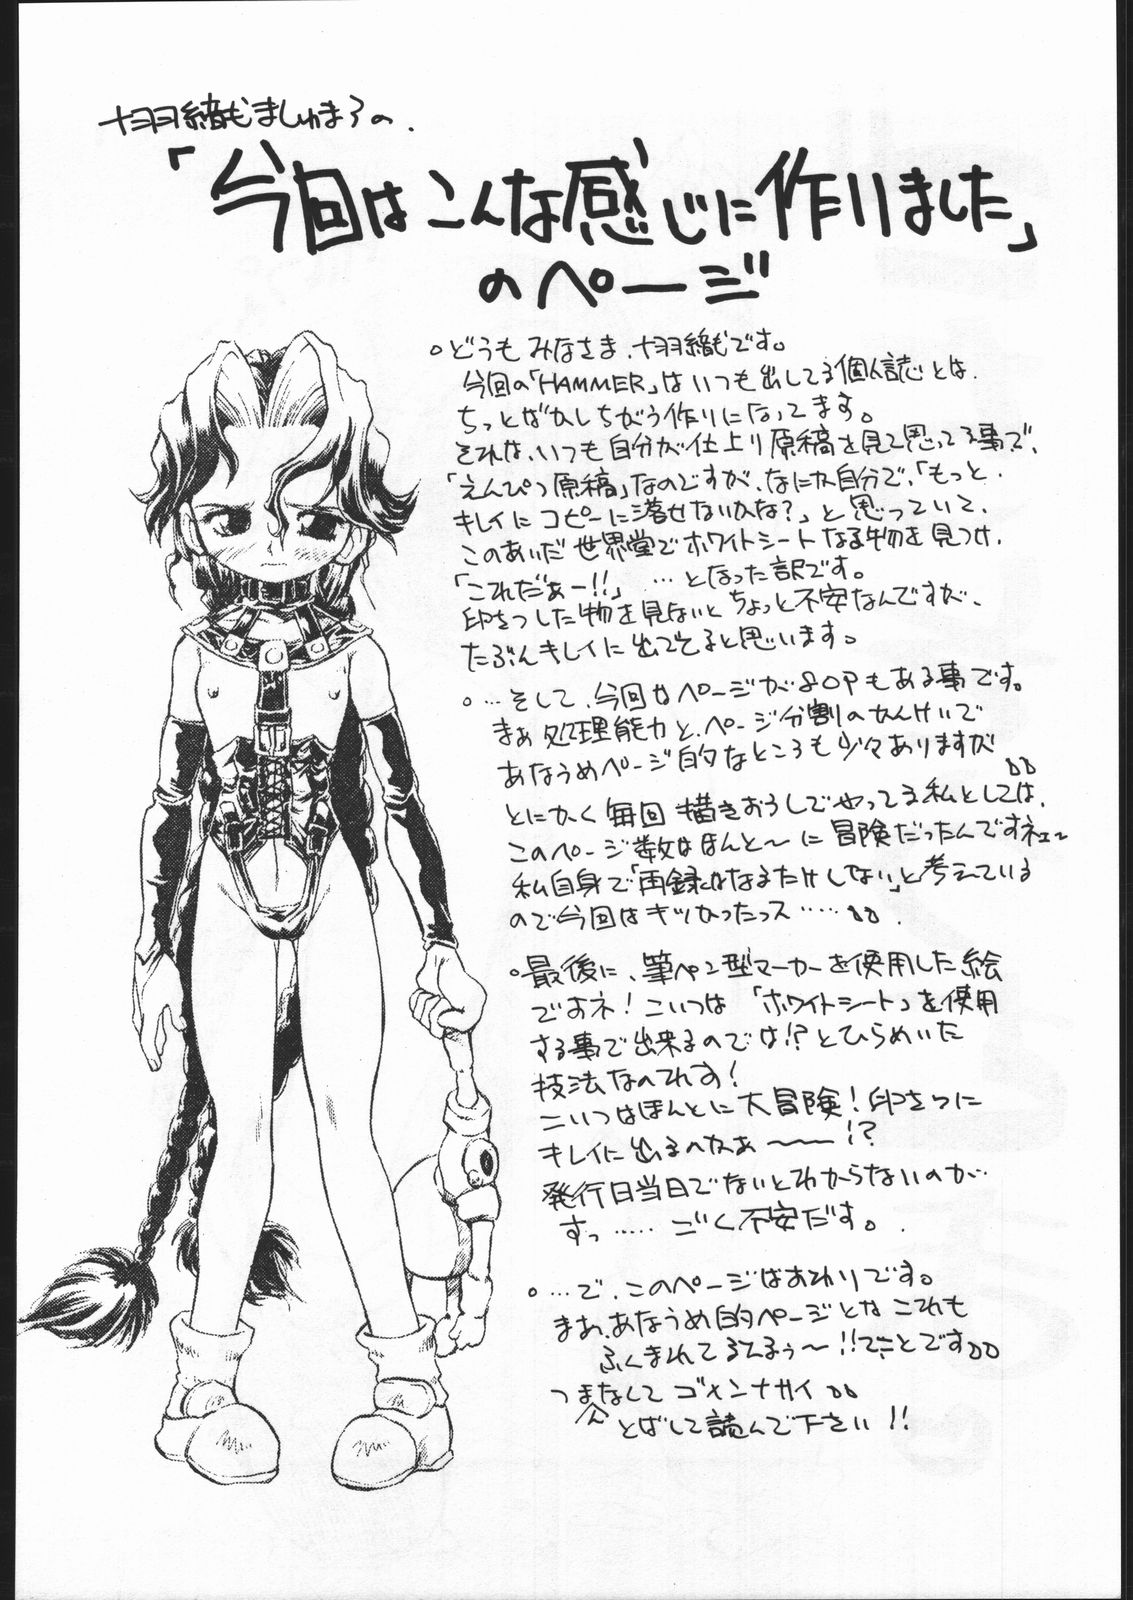 十羽織ましゅまろの、
「今回はこんな感じに作りました」
のページ
○どうもみなさま、十羽織です。
今回の「HAMMER」はいつも出してる個人誌とは、
ちっとばかしちがう作りになってます。
それは、いつも自分が仕上り原稿を見て思ってる事で、
「えんぴつ原稿」なのですが、なにか自分で、「もっと、
キレイにコピーに落せないかな?」と思っていて、
このあいだ世界堂でホワイトシートなる物を見つけ、
「これだぁー!!」…となった訳です。
印さつした物を見ないとちょっと不安なんですが、
たぶんキレイに出てると思います。
○…そして、今回はページが80Pもある事です。
まぁ処理能力と、ページ分割のかんけいで
あなうめページ的なところも少々ありますが
とにかく毎回描きおろしでやってる私としては、
このページ数はほんと〜に冒険だったんですネェ〜
私自身で「再録はなるたけしない」と考えている
ので今回はキツかったっス……。
○最後に、筆ペン型マーカーを使用した絵
ですネ!こいつは「ホワイトシート」を使用
する事で出来るのでは!?とひらめいた
技法なのです!
こいつはほんとに大冒険!印さつに
キレイに出るのかなぁ〜〜!?
発行日当日でないとわからないのが…
すっ……ごく不安だす。
○…で、このページはおわりです。
まぁ、あなうめ的ページとはこれも
ふくまれてるてるぅ〜!!てことです
つまんなくてゴメンナサイ
とばして読んで下さい!!